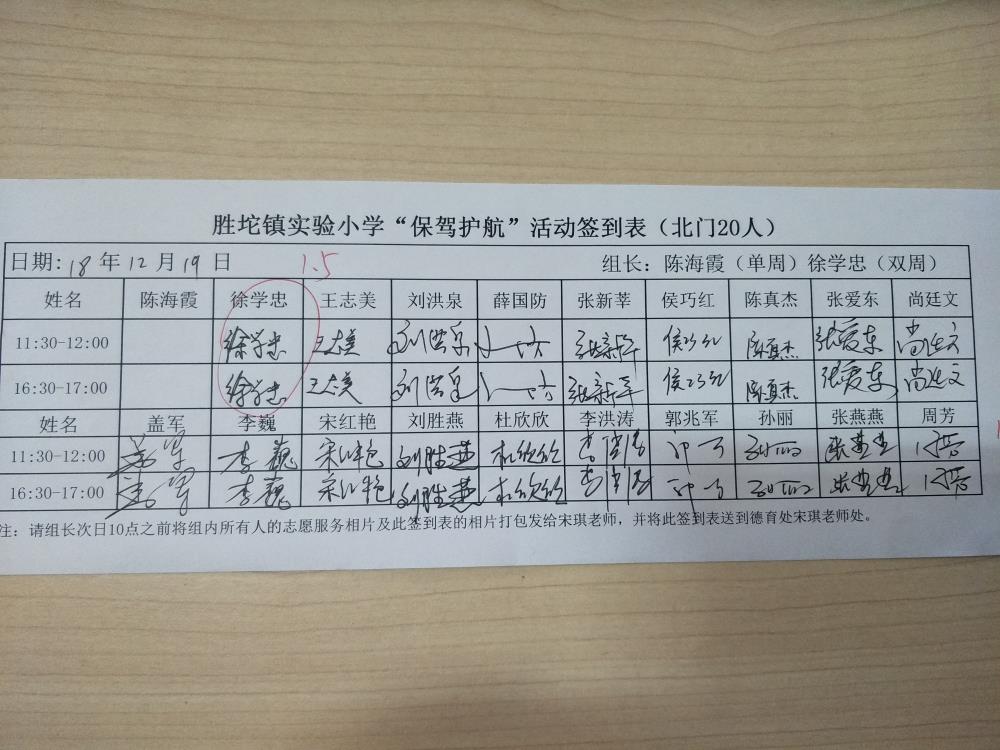 胜坨镇实验小学“保驾护航”活动签到表（北门20人）
日期: 18 年 12 月 19 日 1.5 组长：陈海霞（单周）徐学忠（双周）
姓名 陈海霞 徐学忠 王志美 刘洪泉 薛国防 张新莘 侯巧红 陈真杰 张爱东 尚廷文
11:30-12:00 徐学忠 王志美 刘洪泉 张新莘 侯巧红 陈真杰 张爱东 尚廷文
16:30-17:00 徐学忠 王志美 刘洪泉 张新莘 侯巧红 陈真杰 张爱东 尚廷文
姓名 盖军 李巍 宋红艳 刘胜燕 杜欣欣 李洪涛 郭兆军 孙丽 张燕燕 周芳
11:30-12:00 盖军 李巍 宋红艳 刘胜燕 杜欣欣 李洪涛 孙丽 张燕燕 周芳
16:30-17:00 盖军 李巍 宋红艳 刘胜燕 杜欣欣 李洪涛 孙丽 张燕燕 周芳
注：请组长次日10点之前将组内所有人的志愿服务相片及此签到表的相片打包发给宋琪老师，并将此签到表送到德育处宋琪老师处。